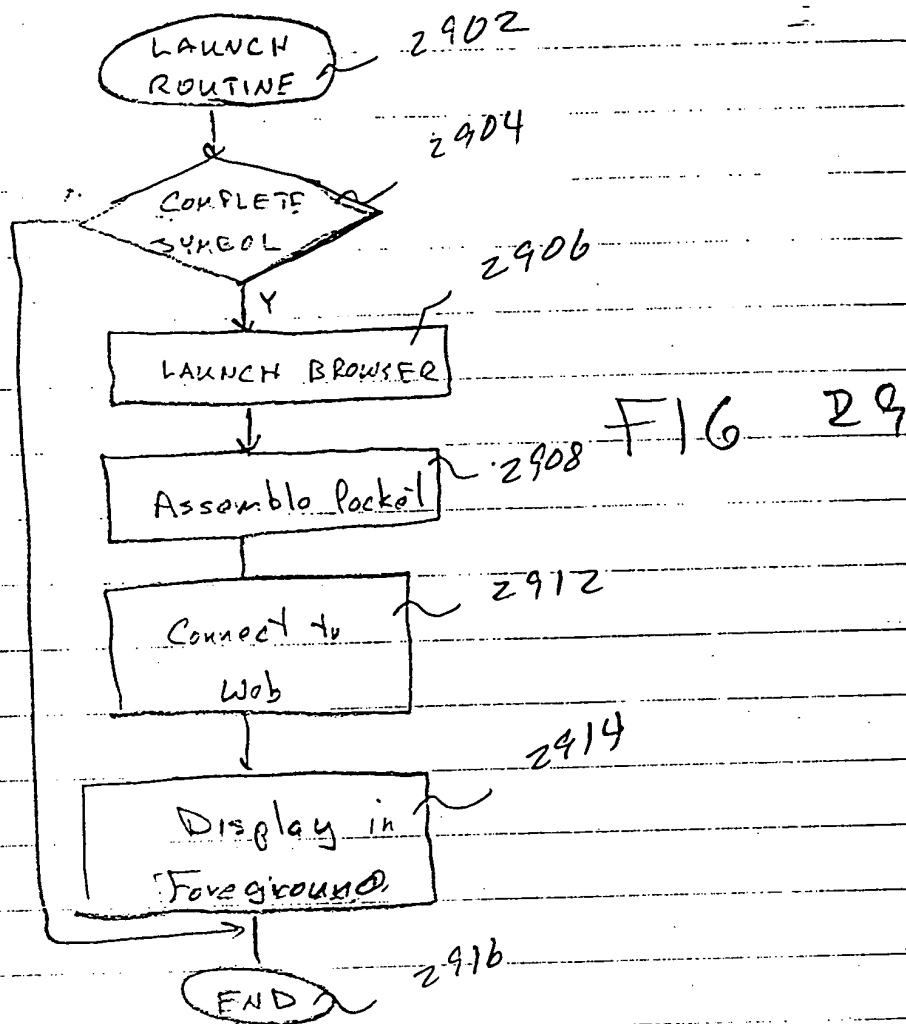 LAUNCH
ROUTINE
2902
2904
COMPLETE
SYMBOL
2906
Y
LAUNCH BROWSER
FIG 29
2908
Assemble Packet
2912
Connect to
Web
2914
Display in
Foreground
2916
END